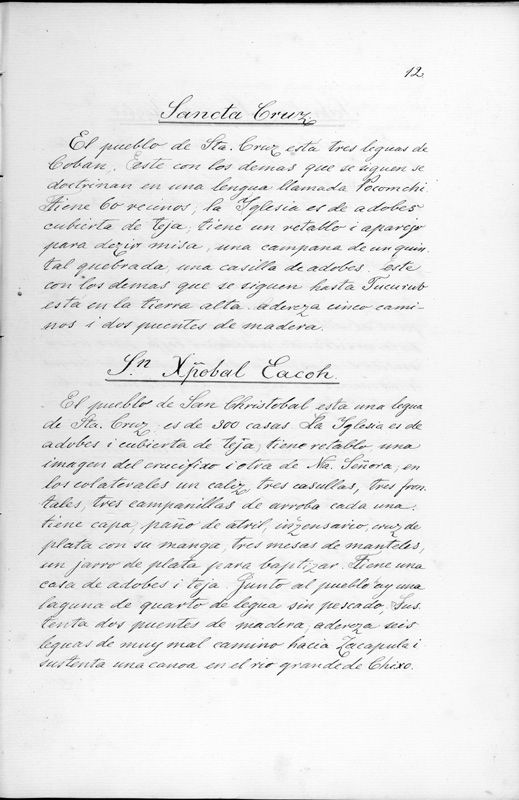 12
Sancta Cruz
El pueblo de Sta. Cruz esta tres leguas de
Coban. Este con los demas que se siguen se
doctrinan en una lengua llamada Pocomchi.
Tiene 60 vecinos; la Iglesia es de adobes
cubierta de teja; tiene un retablo i aparejo
para dezir misa, una campana de un quin-
tal quebrada, una casilla de adobes. Este
con los demas que se siguen hasta Tucurub
esta en la tierra alta. adereza cinco cami-
nos i dos puentes de madera.
Sn Xpobal Cacoh.
El pueblo de San Christobal esta una legua
de Sta. Cruz; es de 300 casas. La Iglesia es de
adobes i cubierta de teja; tiene retablo una
imagen del crucifixo i otra de Na. Señora, en
los colaterales un caliz, tres casullas, tres fron-
tales, tres campanillas de arroba cada una.
tiene capa, paño de atril, inzensario, cruz de
plata con su manga, tres mesas de manteles,
un jarro de plata para baptizar. Tiene una
casa de adobes i teja. Junto al pueblo ay una
laguna de quarto de legua sin pescado. Sus-
tenta dos puentes de madera, adereza seis
leguas de muy mal camino hacia Zacapula i
sustenta una canoa en el rio grande de Chixo.